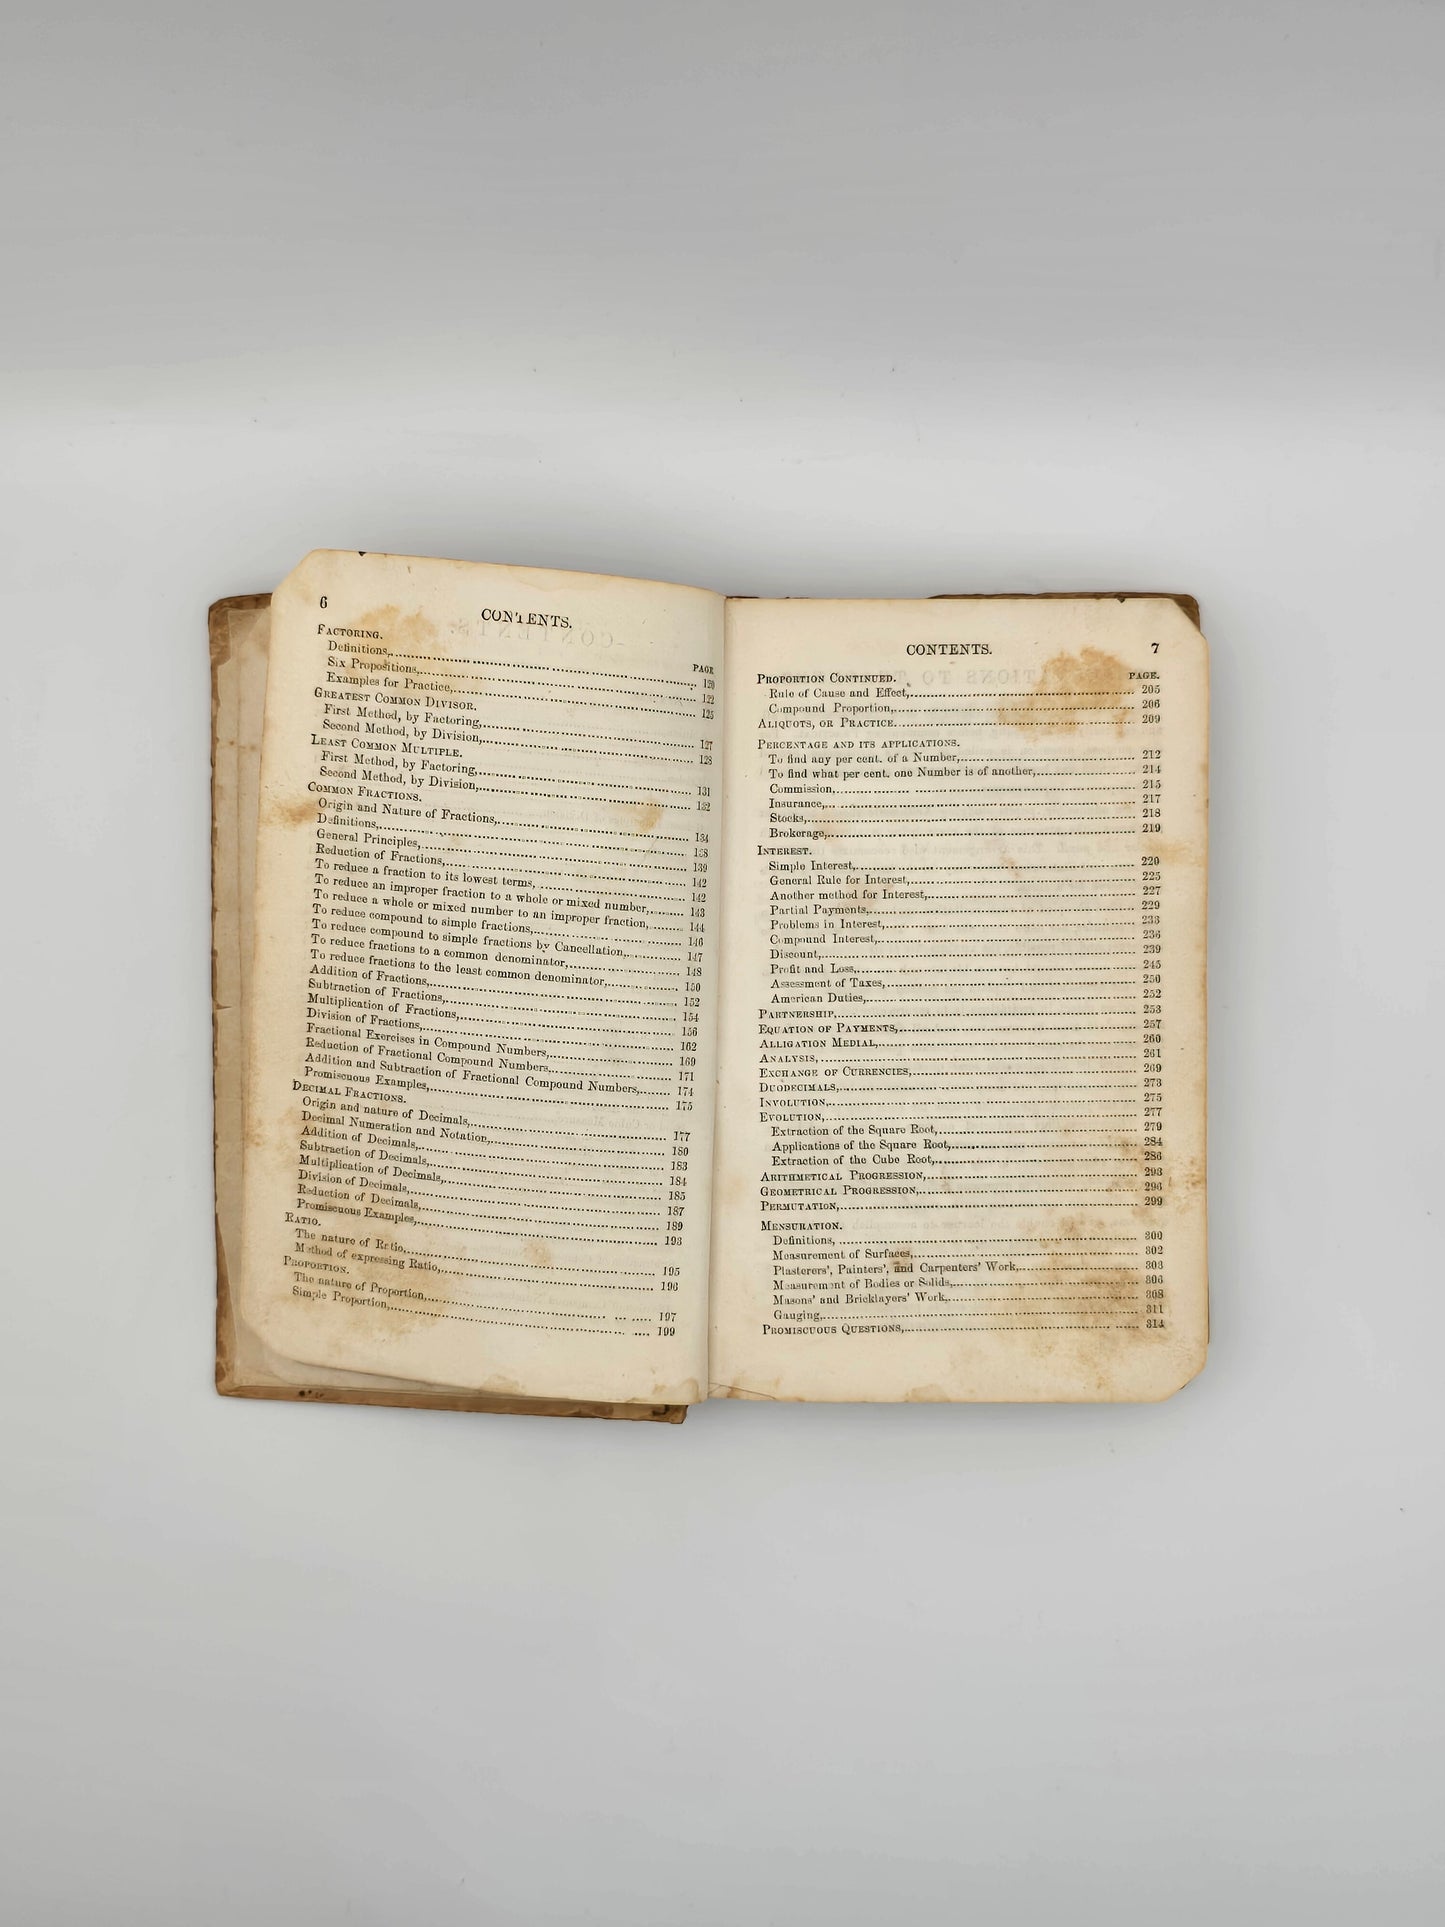 6
CONTENTS.
PAGE
FACTORING.
Definitions, 120
Six Propositions, 122
Examples for Practice, 125
GREATEST COMMON DIVISOR.
First Method, by Factoring, 127
Second Method, by Division, 128
LEAST COMMON MULTIPLE.
First Method, by Factoring, 131
Second Method, by Division, 132
COMMON FRACTIONS.
Origin and Nature of Fractions, 134
Definitions, 138
General Principles, 139
Reduction of Fractions, 142
To reduce a fraction to its lowest terms, 142
To reduce an improper fraction to a whole or mixed number, 143
To reduce a whole or mixed number to an improper fraction, 144
To reduce compound to simple fractions, 146
To reduce compound to simple fractions by Cancellation, 147
To reduce fractions to a common denominator, 148
To reduce fractions to the least common denominator, 150
Addition of Fractions, 152
Subtraction of Fractions, 154
Multiplication of Fractions, 156
Division of Fractions, 162
Fractional Exercises in Compound Numbers, 169
Reduction of Fractional Compound Numbers, 171
Addition and Subtraction of Fractional Compound Numbers, 174
Promiscuous Examples, 175
DECIMAL FRACTIONS.
Origin and nature of Decimals, 177
Decimal Numeration and Notation, 180
Addition of Decimals, 183
Subtraction of Decimals, 184
Multiplication of Decimals, 185
Division of Decimals, 187
Reduction of Decimals, 189
Promiscuous Examples, 193
RATIO.
The nature of Ratio, 195
Method of expressing Ratio, 196
PROPORTION.
The nature of Proportion, 197
Simple Proportion, 199
CONTENTS. 7
PROPORTION CONTINUED. PAGE.
Rule of Cause and Effect, 205
Compound Proportion, 206
ALIQUOTS, OR PRACTICE. 209
PERCENTAGE AND ITS APPLICATIONS.
To find any per cent. of a Number, 212
To find what per cent. one Number is of another, 214
Commission, 215
Insurance, 217
Stocks, 218
Brokerage, 219
INTEREST.
Simple Interest, 220
General Rule for Interest, 225
Another method for Interest, 227
Partial Payments, 229
Problems in Interest, 233
Compound Interest, 236
Discount, 239
Profit and Loss, 245
Assessment of Taxes, 250
American Duties, 252
PARTNERSHIP, 253
EQUATION OF PAYMENTS, 257
ALLIGATION MEDIAL, 260
ANALYSIS, 261
EXCHANGE OF CURRENCIES, 269
DUODECIMALS, 273
INVOLUTION, 275
EVOLUTION, 277
Extraction of the Square Root, 279
Applications of the Square Root, 284
Extraction of the Cube Root, 286
ARITHMETICAL PROGRESSION, 293
GEOMETRICAL PROGRESSION, 296
PERMUTATION, 299
MENSURATION.
Definitions, 300
Measurement of Surfaces, 302
Plasterers', Painters', and Carpenters' Work, 303
Measurement of Bodies or Solids, 306
Masons' and Bricklayers' Work, 308
Gauging, 311
PROMISCUOUS QUESTIONS, 314